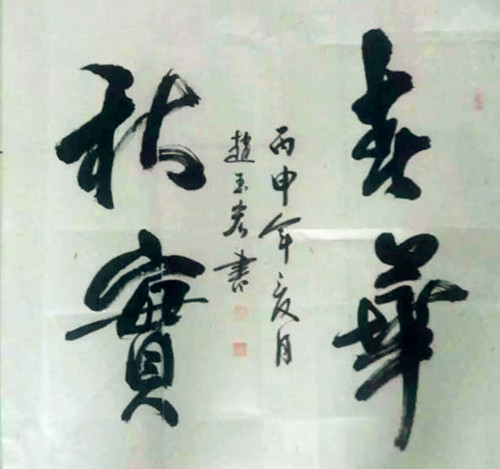 春華
秋實
丙申年夏月
趙玉書